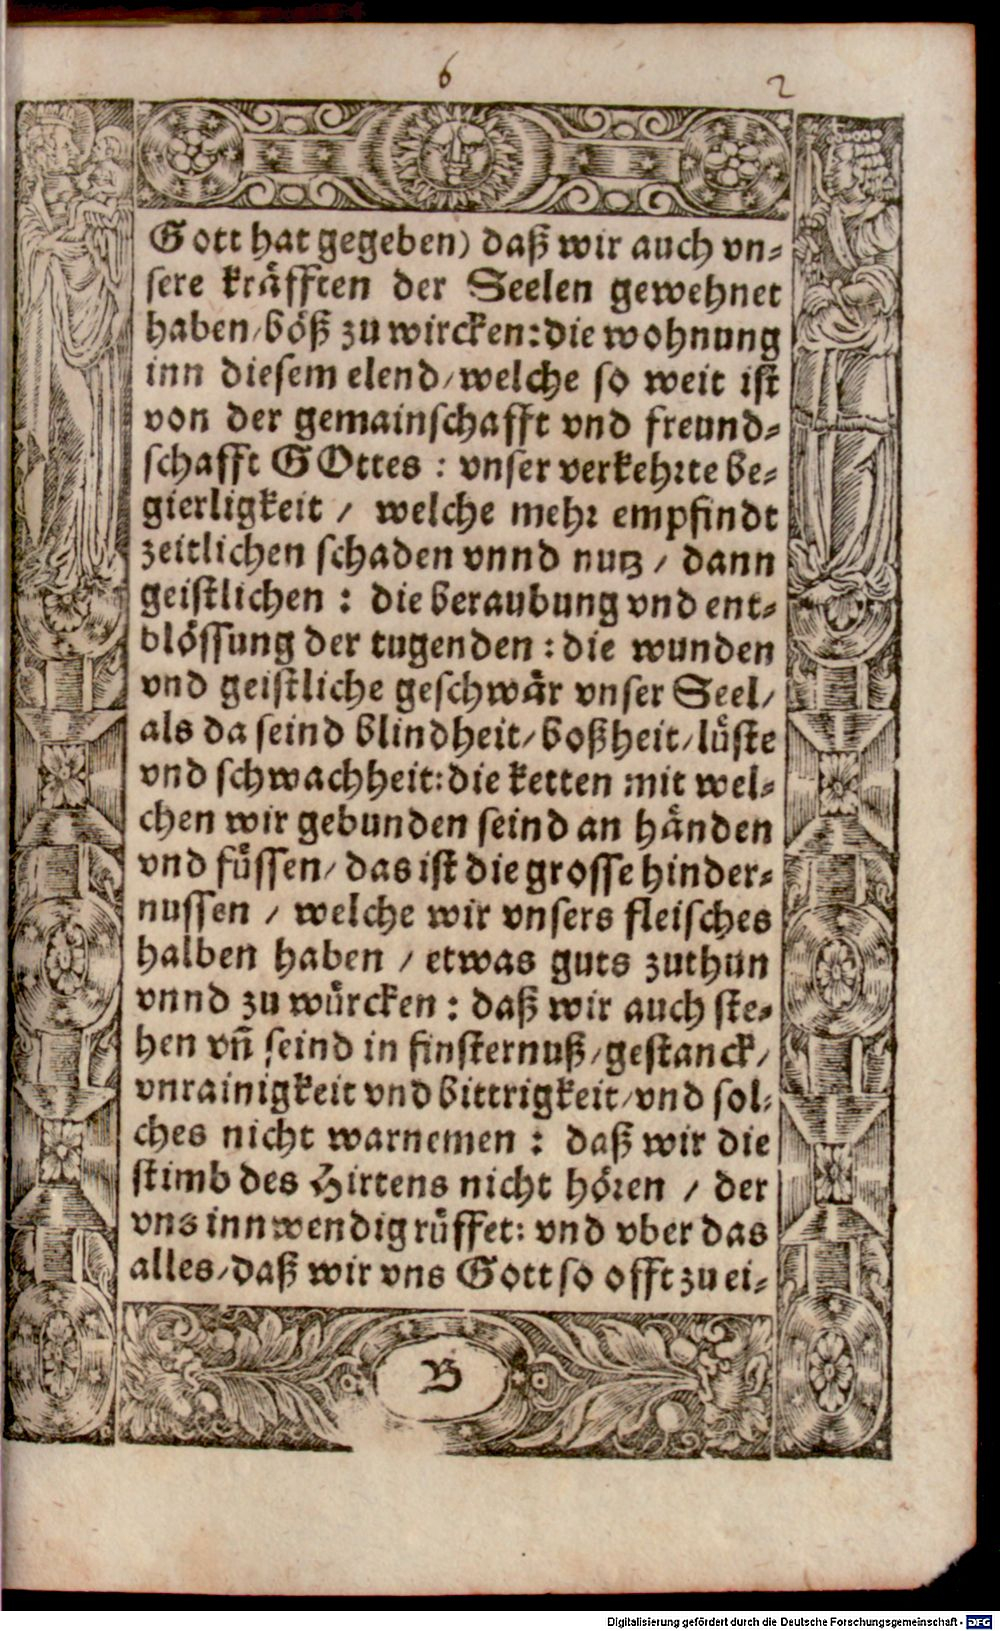 6
2
Gott hat gegeben) daß wir auch vn⸗
sere kräfften der Seelen gewehnet
haben / böß zu wircken: die wohnung
inn diesem elend / welche so weit ist
von der gemainschafft vnd freund⸗
schafft GOttes : vnser verkehrte be⸗
gierligkeit / welche mehr empfindt
zeitlichen schaden vnnd nutz / dann
geistlichen : die beraubung vnd ent⸗
blössung der tugenden : die wunden
vnd geistliche geschwär vnser Seel /
als da seind blindheit / boßheit / lüste
vnd schwachheit: die ketten mit wel⸗
chen wir gebunden seind an händen
vnd füssen / das ist die grosse hinder⸗
nussen / welche wir vnsers fleisches
halben haben / etwas guts zuthun
vnnd zu würcken : daß wir auch ste⸗
hen vñ seind in finsternuß / gestanck /
vnrainigkeit vnd bittrigkeit / vnd sol⸗
ches nicht warnemen : daß wir die
stimb des Hirtens nicht hören / der
vns innwendig rüffet: vnd vber das
alles / daß wir vns Gott so offt zu ei⸗
B
Digitalisierung gefördert durch die Deutsche Forschungsgemeinschaft - DFG